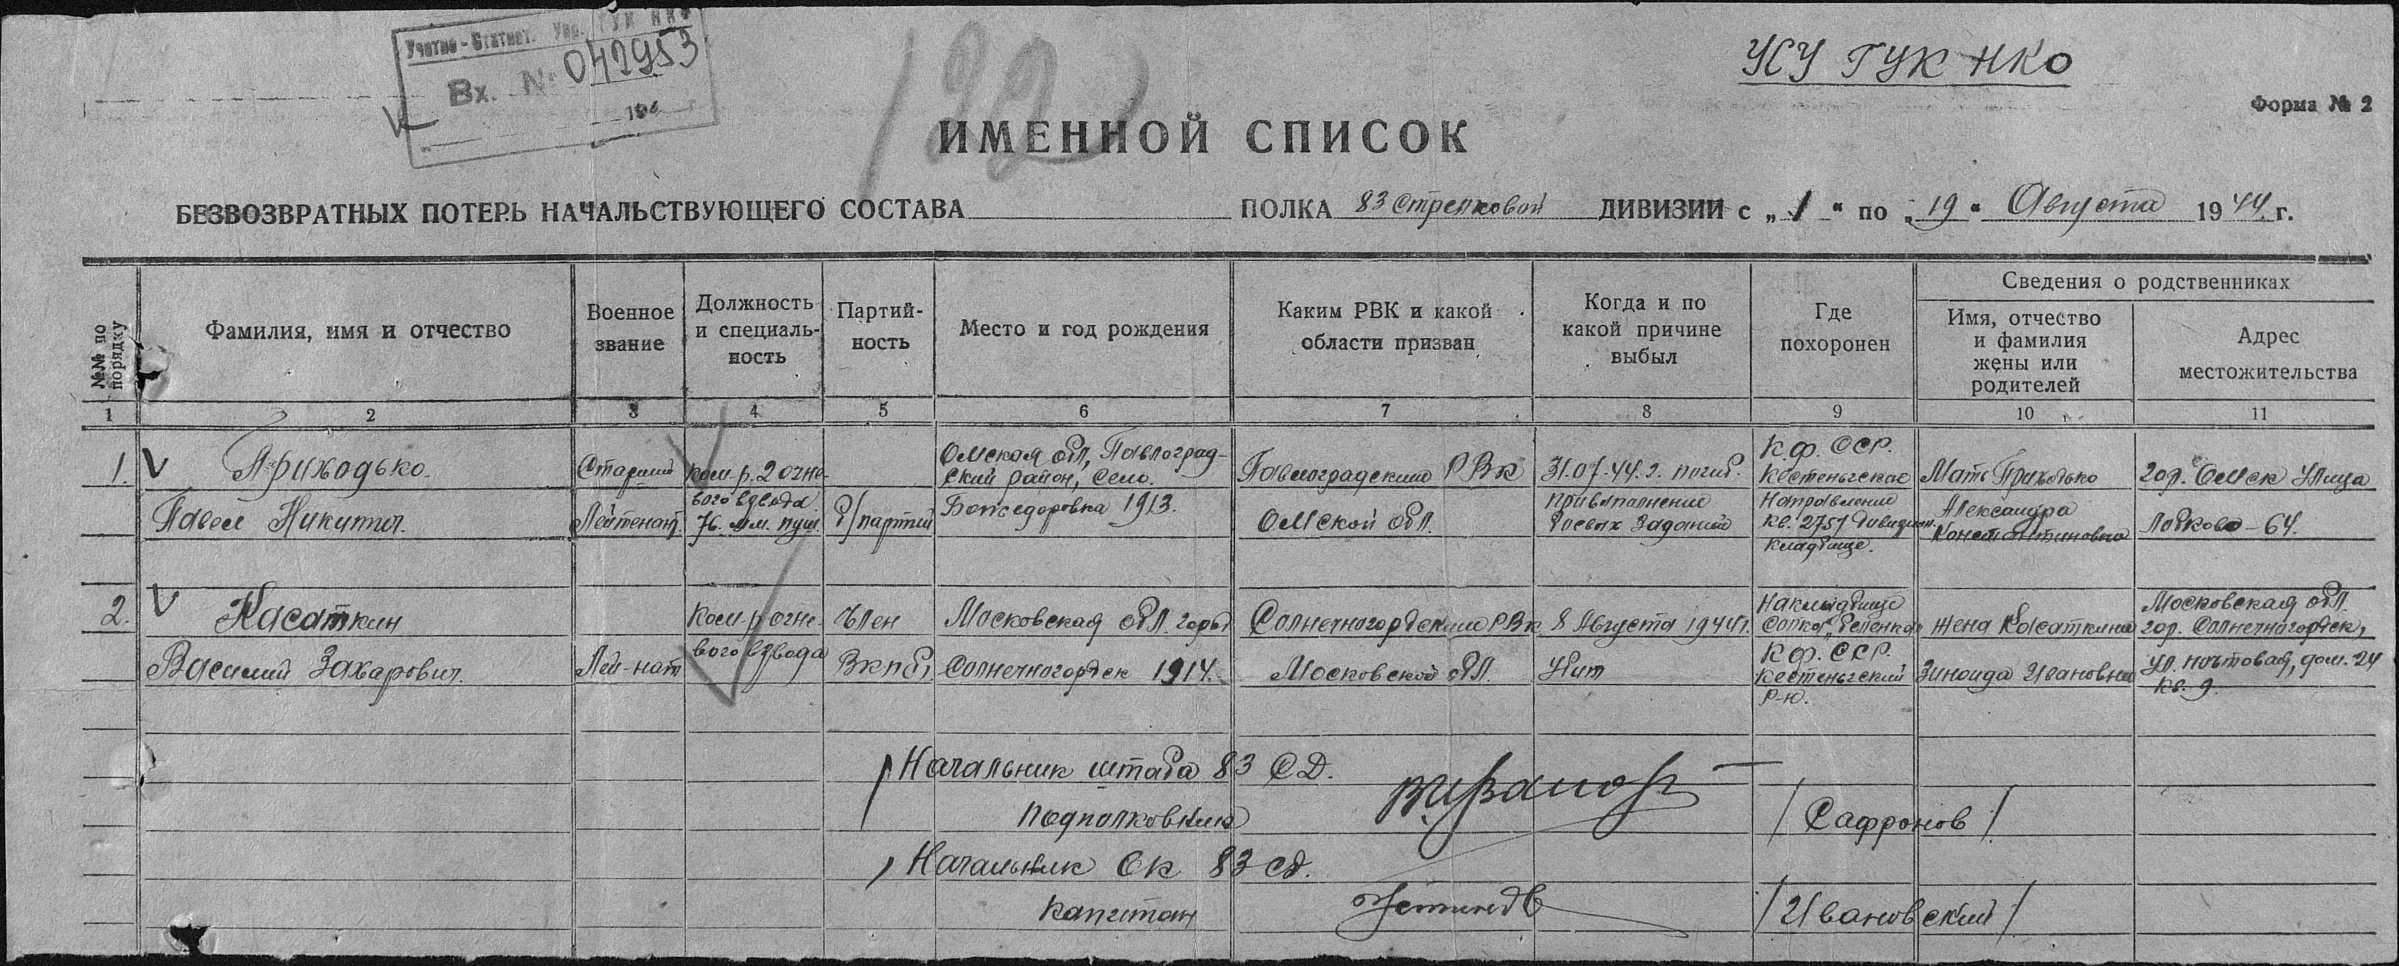 Учетно-Статист. Упр. ГУК НКО
Вх. № 042953
194 г.
122
УСУ ГУК НКО
Форма № 2
ИМЕННОЙ СПИСОК
БЕЗВОЗВРАТНЫХ ПОТЕРЬ НАЧАЛЬСТВУЮЩЕГО СОСТАВА ПОЛКА 83 Стрелковой ДИВИЗИИ с „1“ по „19“ Августа 1944 г.
№№ по порядку
Фамилия, имя и отчество
Военное
звание
Должность
и специаль-
ность
Партий-
ность
Место и год рождения
Каким РВК и какой
области призван
Когда и по
какой причине
выбыл
Где
похоронен
Сведения о родственниках
Имя, отчество
и фамилия
жены или
родителей
Адрес
местожительства
1 2 3 4 5 6 7 8 9 10 11
1. Приходько
Павел Никитич.
Старший
Лейтенант
ком-р. 2 огне-
вого взвода
76. мм. пуш.
б/партий
Омская обл, Павлоград-
ский район, село.
1913.
Павлоградский РВК
Омской обл.
31.07.44.г. погиб.
при выполнении
боевых заданий
К.ф. ССР.
Кестеньгское
Направление
кв. 2751 дивизион.
кладбище.
Мать Приходько
Александра
Константиновна
гор. Омск Улица
Лобково-64.
2. Касаткин
Василий Захарович.
Лей-нат
Ком-р огне-
вого взвода
Член
ВКП(б)
Московская обл. город
Солнечногорск 1914.
Солнечногорским РВК
Московской обл.
8 Августа 1944 г.
Убит
На кладбище
Сопка
К.ф. ССР.
Кестеньгский
р-н.
жена Касаткина
Зинаида Ивановна
Московская обл.
гор. Солнечногорск,
ул. почтовая, дом. 24
кв. 9.
Начальник штаба 83 СД.
Подполковник
/Сафронов/
Начальник ОК 83 сд.
Капитан
/Ивановский/